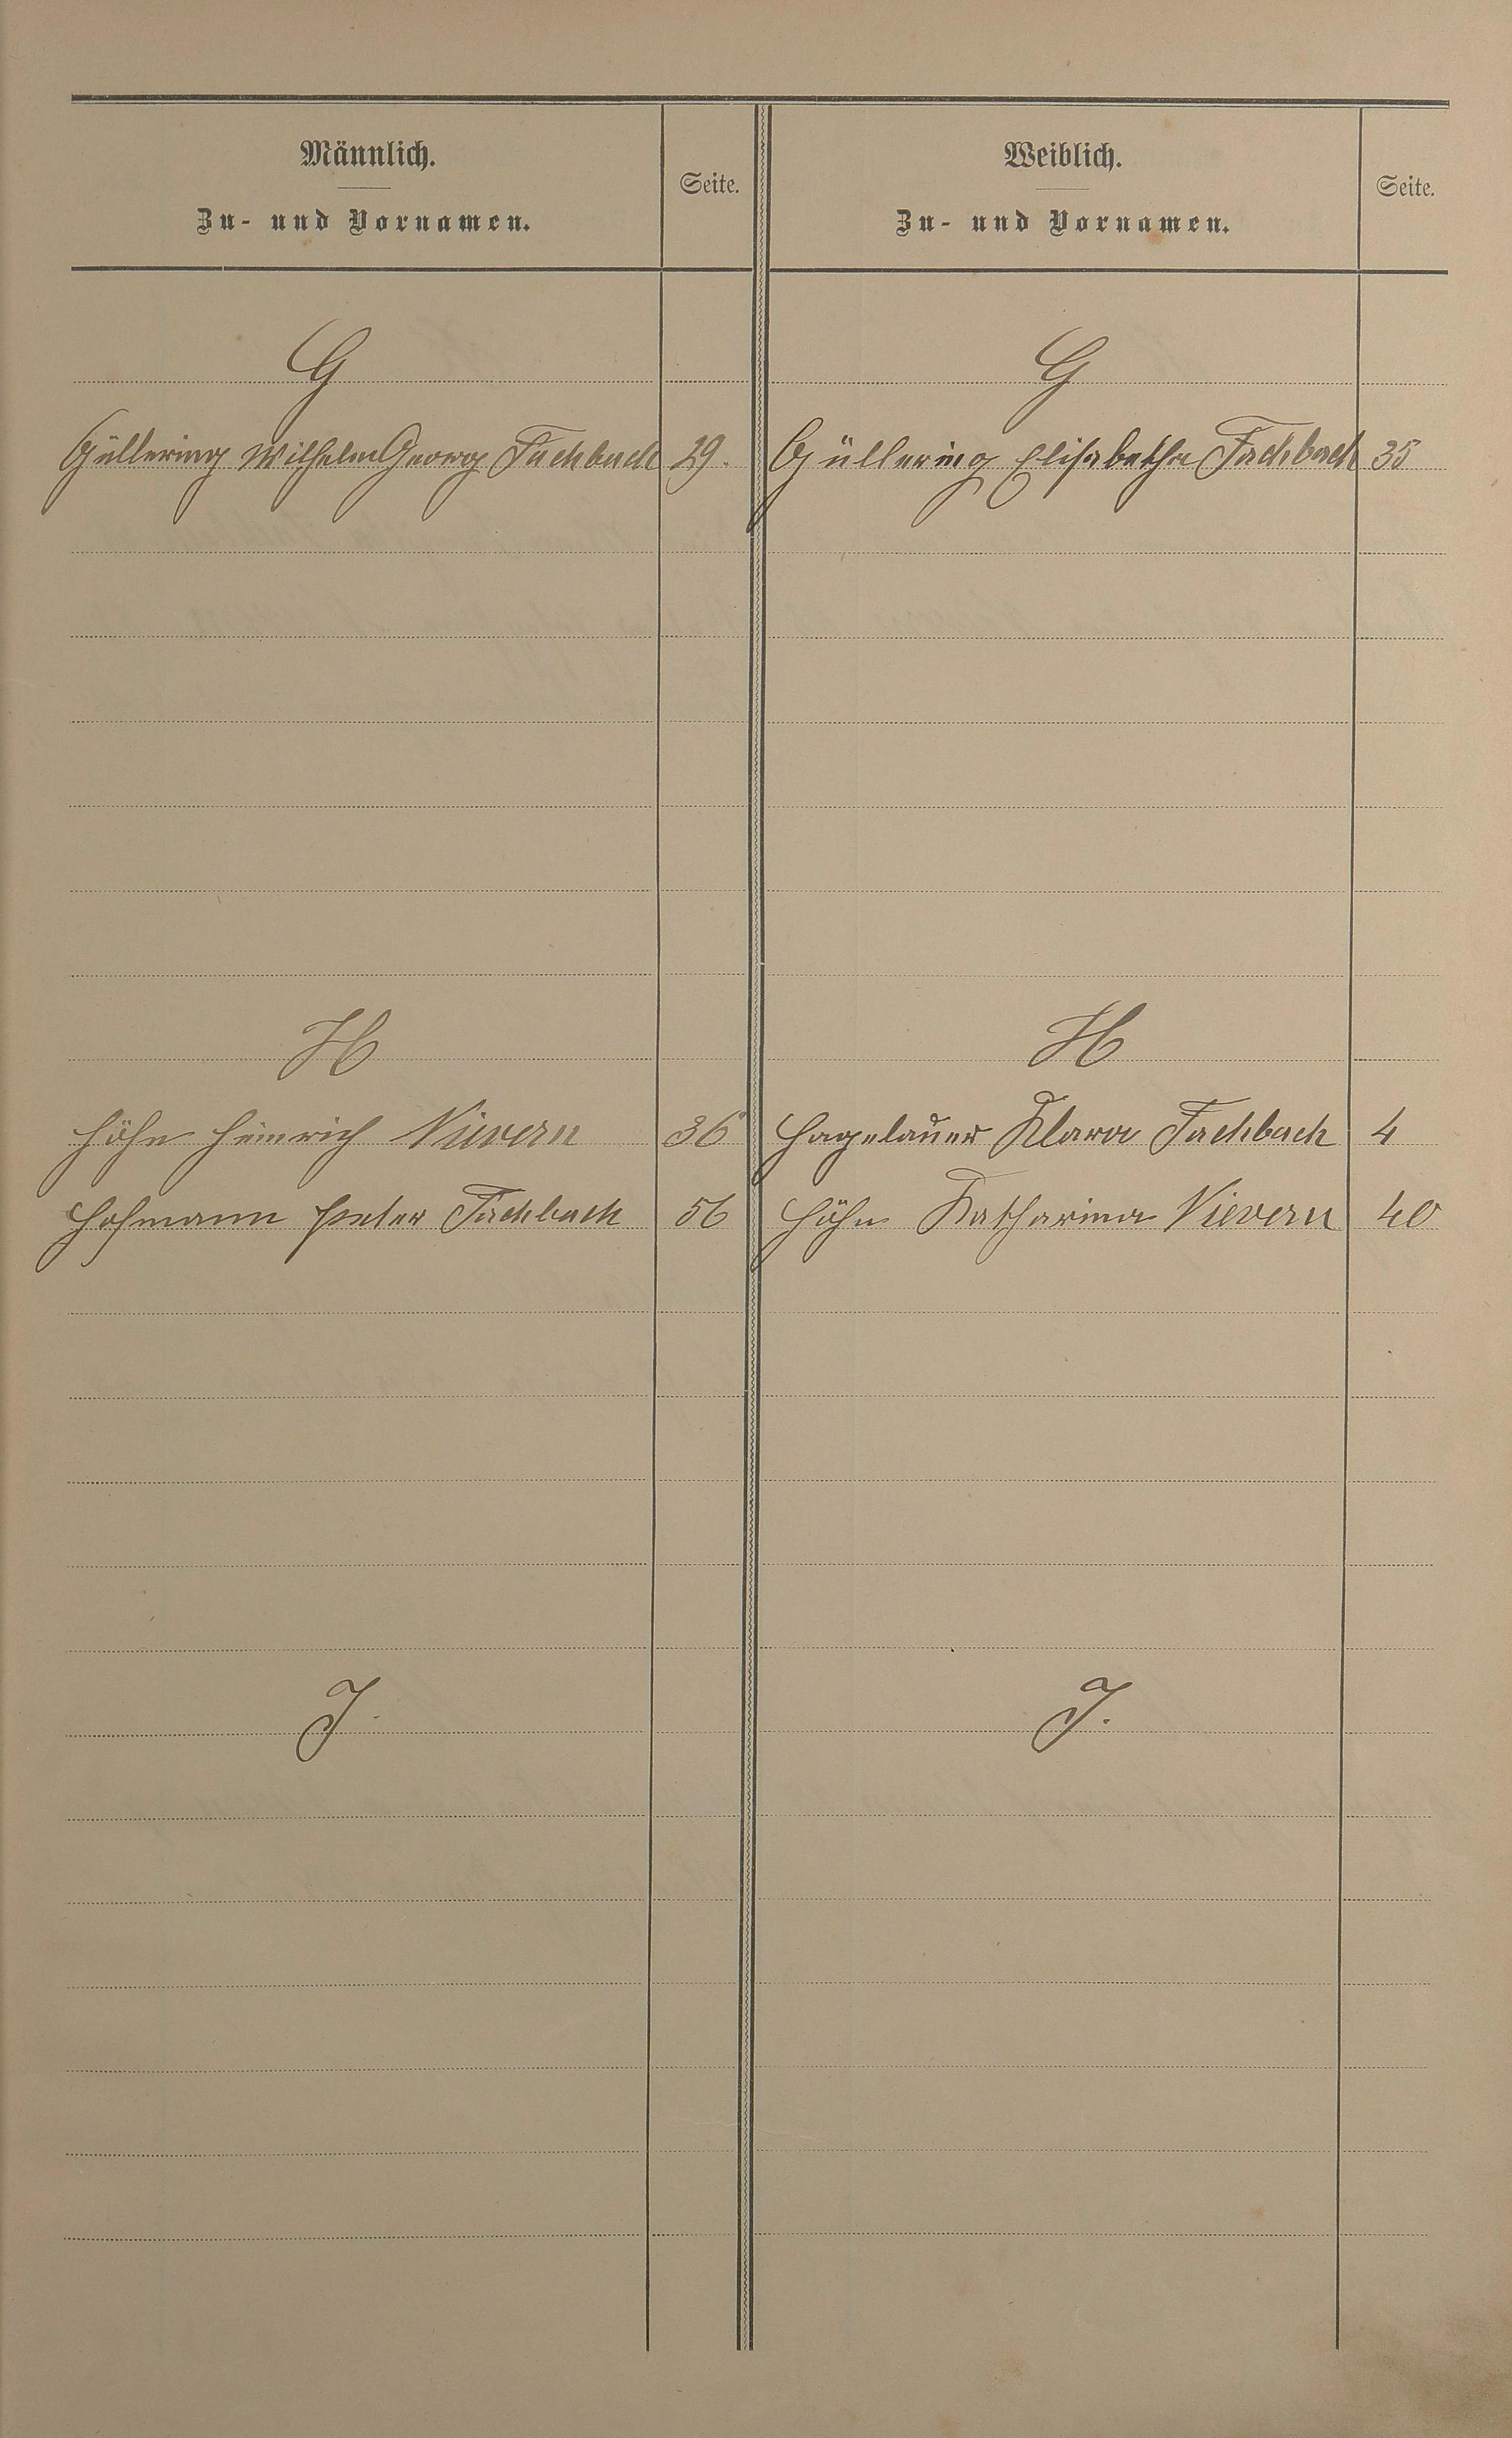 Männlich.
Zu- und Vornamen.
Seite.
Weiblich.
Zu- und Vornamen.
Seite.
G
G
Güllering Wilhelm Georg Fachbach 29.
Güllering Elisabetha Fachbach 35
H
H
Höhn Heinrich Nievern 36
Hagelauer Klara Fachbach 4
Hofmann Peter Fachbach 56
Höhn Katharina Nievern 40
J.
J.